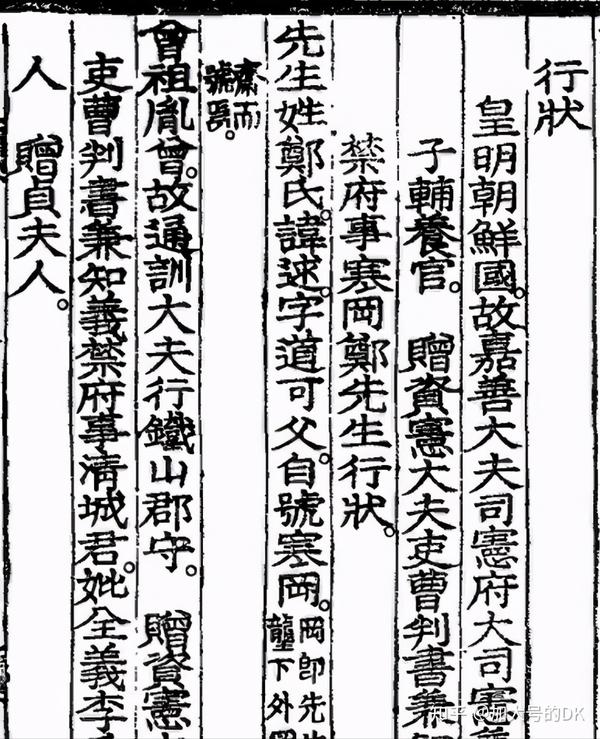 行狀
皇明朝鮮國。故嘉善大夫司憲府大司憲
子輔養官。　贈資憲大夫吏曹判書兼
禁府事寒岡鄭先生行狀。
先生姓鄭氏。諱逑。字道可父。自號寒岡。
岡卽先生
壟下外
齋而
號焉。
曾祖胤曾。故通訓大夫行鐵山郡守。　贈資憲
吏曹判書兼知義禁府事淸城君。妣全義李
人　贈貞夫人。
知乎 @加大号的DK